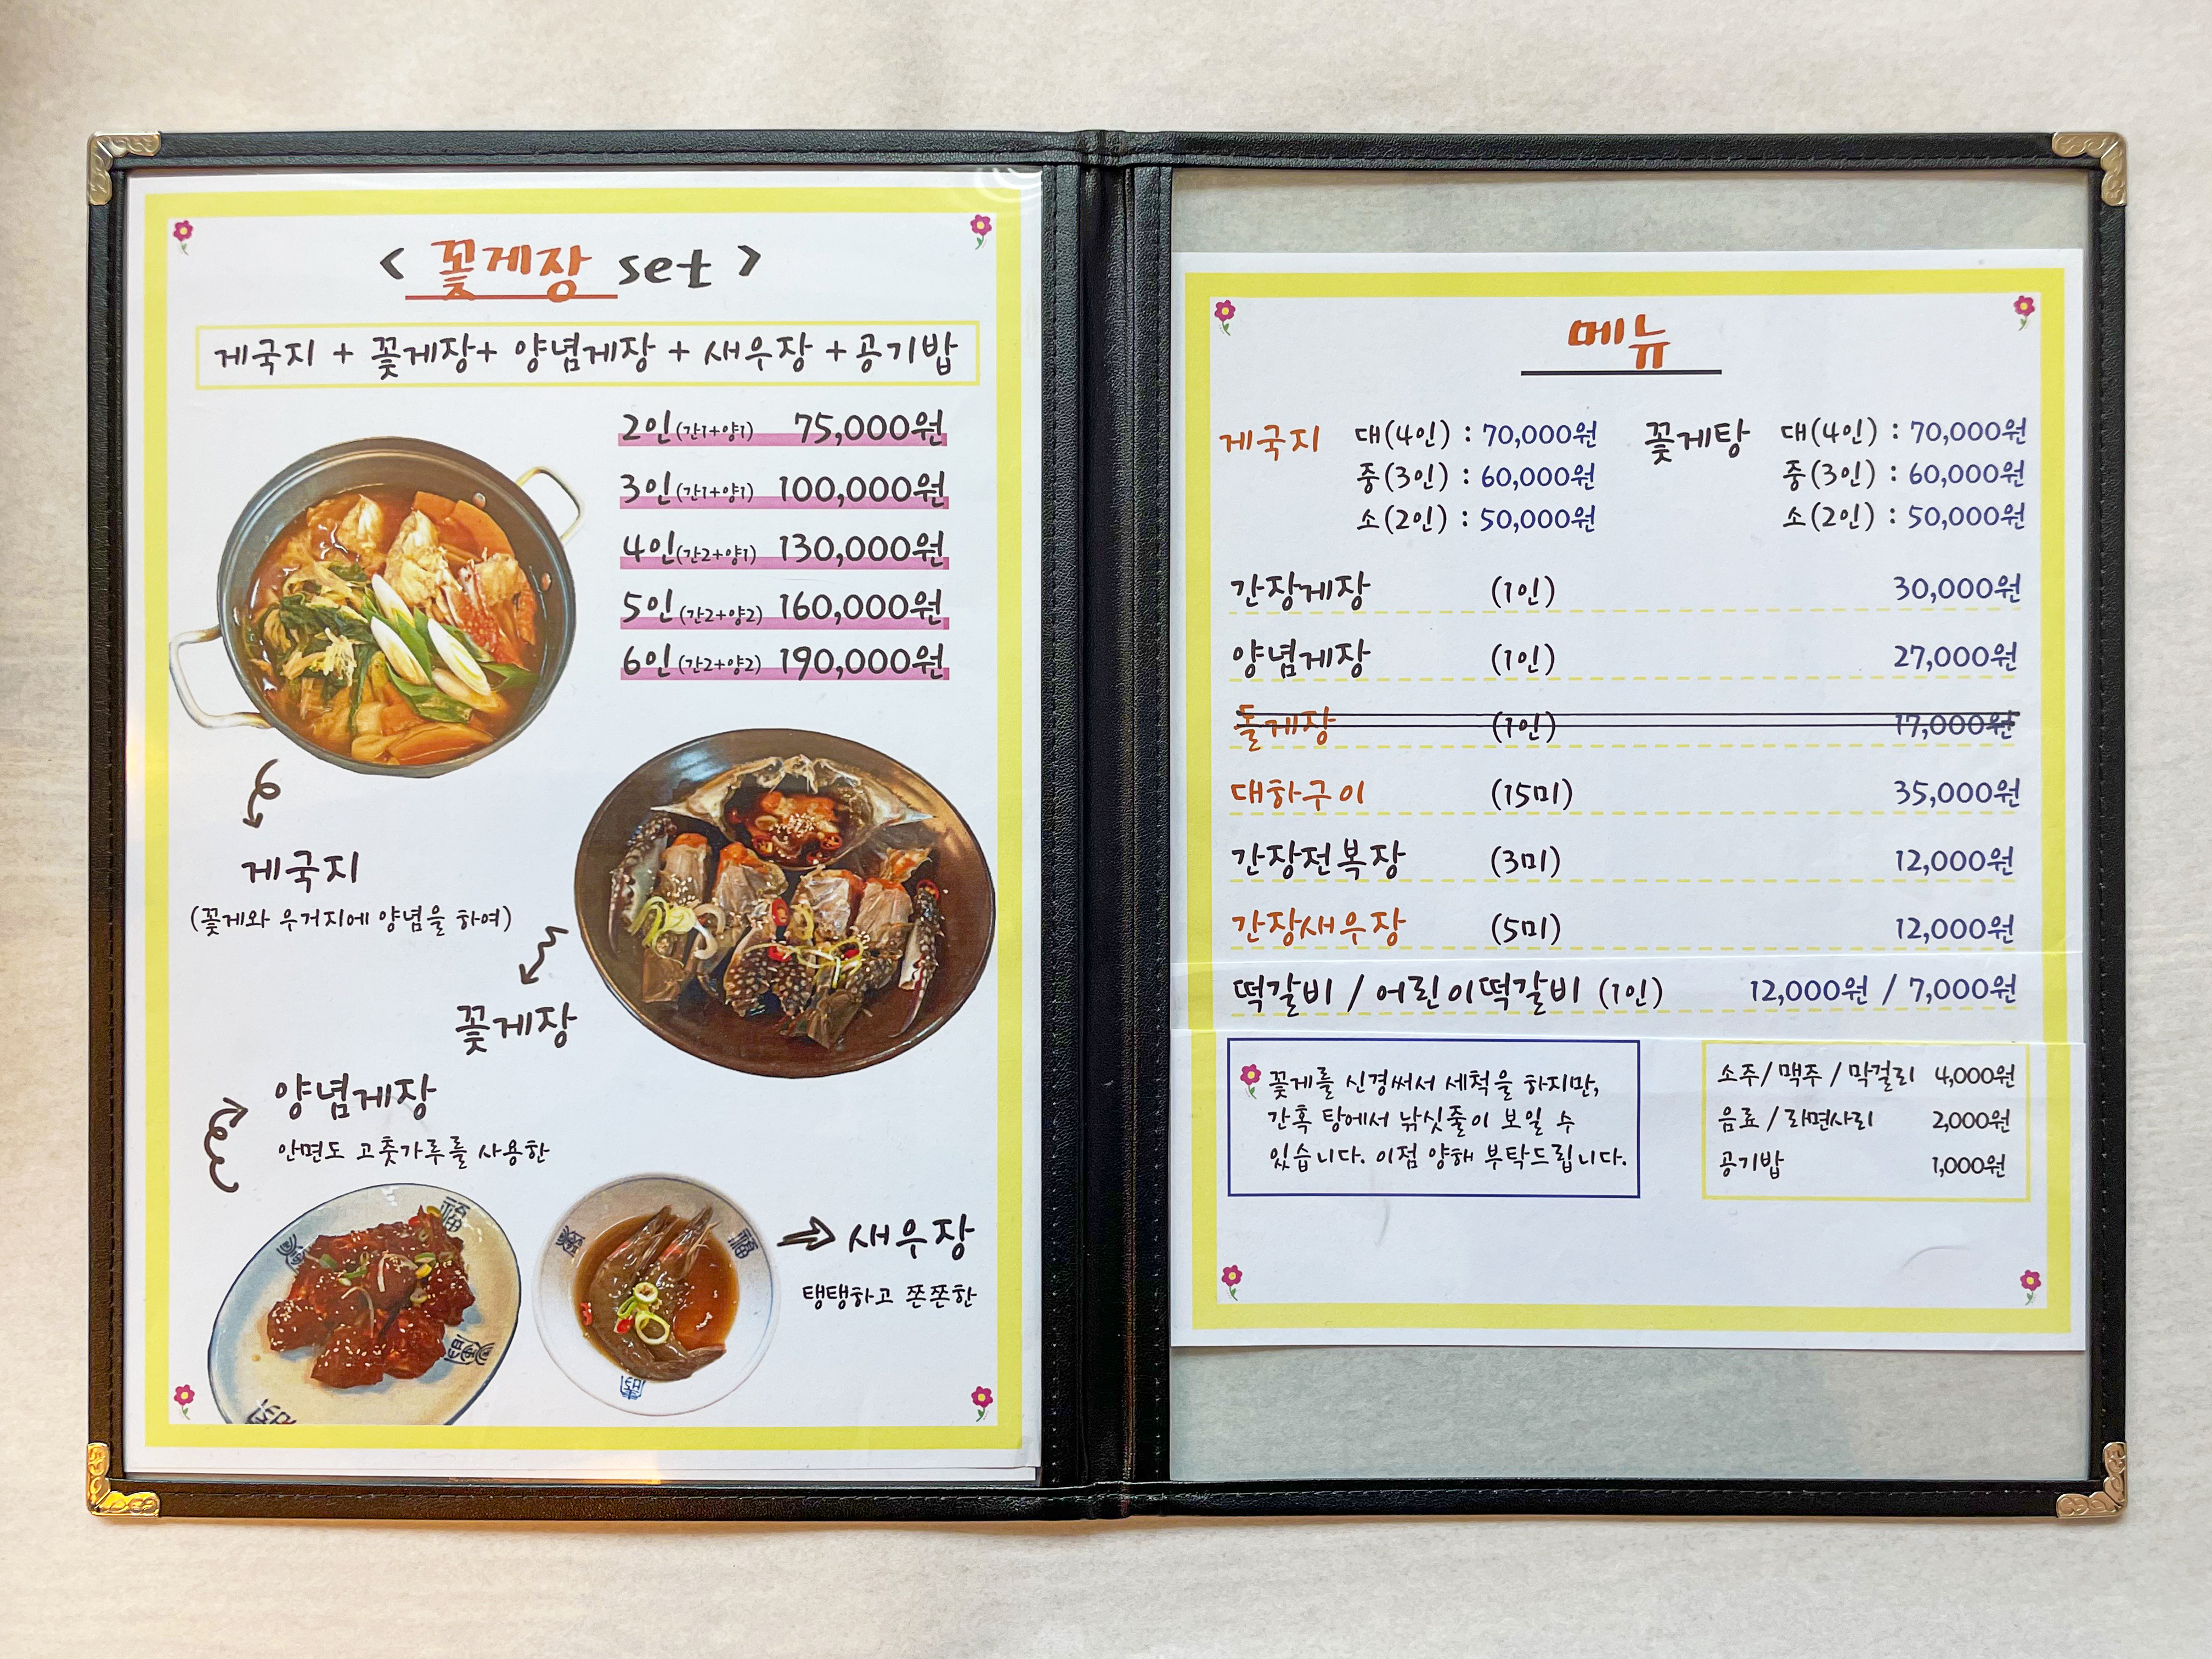 < 꽃게장 set >
게국지 + 꽃게장+ 양념게장 + 새우장 +공기밥
2인(간1+양1) 75,000원
3인(간1+양1) 100,000원
4인(간2+양1) 130,000원
5인(간2+양2) 160,000원
6인(간2+양2) 190,000원
게국지
(꽃게와 우거지에 양념을 하여)
꽃게장
양념게장
안면도 고춧가루를 사용한
새우장
탱탱하고 쫀쫀한
福
福
메뉴
게국지 대(4인) : 70,000원 꽃게탕 대(4인) : 70,000원
중(3인) : 60,000원 중(3인) : 60,000원
소(2인) : 50,000원 소(2인) : 50,000원
간장게장 (1인) 30,000원
양념게장 (1인) 27,000원
돌게장 (1인) 17,000원
대하구이 (15미) 35,000원
간장전복장 (3미) 12,000원
간장새우장 (5미) 12,000원
떡갈비 / 어린이떡갈비 (1인) 12,000원 / 7,000원
꽃게를 신경써서 세척을 하지만,
간혹 탕에서 낚싯줄이 보일 수
있습니다. 이점 양해 부탁드립니다.
소주/ 맥주 / 막걸리 4,000원
음료 / 라면사리 2,000원
공기밥 1,000원